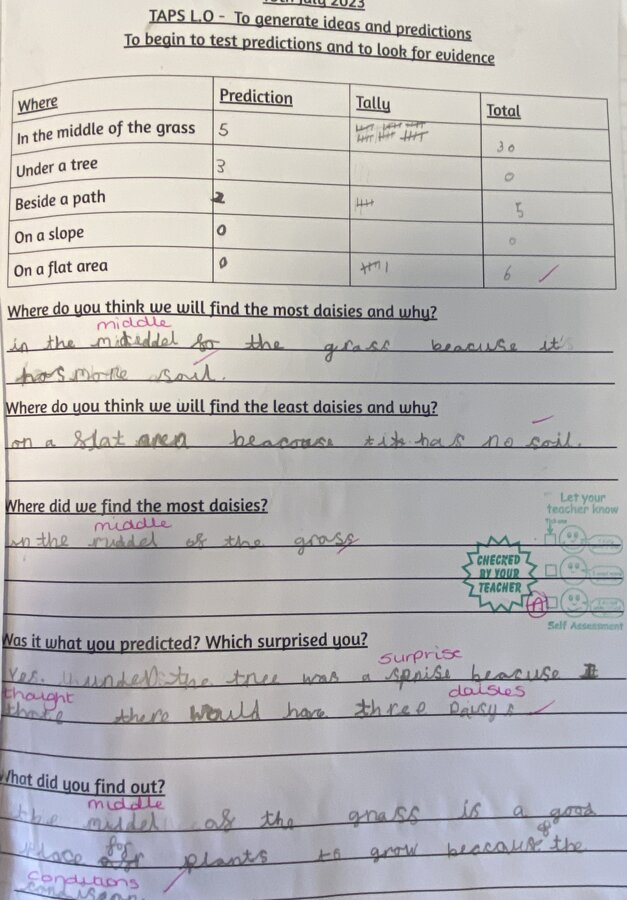 July 2023
TAPS L.O - To generate ideas and predictions
To begin to test predictions and to look for evidence
Where Prediction Tally Total
In the middle of the grass 5 30
Under a tree 3 0
Beside a path 2 5
On a slope 0 0
On a flat area 0 6
Where do you think we will find the most daisies and why?
middle
in the the grass beacuse it's
has more soil.
Where do you think we will find the least daisies and why?
on a flat area has no soil.
Where did we find the most daisies?
middle
in the middel of the grass
Let your
teacher know
CHECKED
BY YOUR
TEACHER
A
Self Assessment
Was it what you predicted? Which surprised you?
surprise
Yes. under the tree was a sprise beacuse I
thought daisies
there would have three Daisys
What did you find out?
middle
the middel of the grass is a good
for of
place plants to grow beacause the
conditions